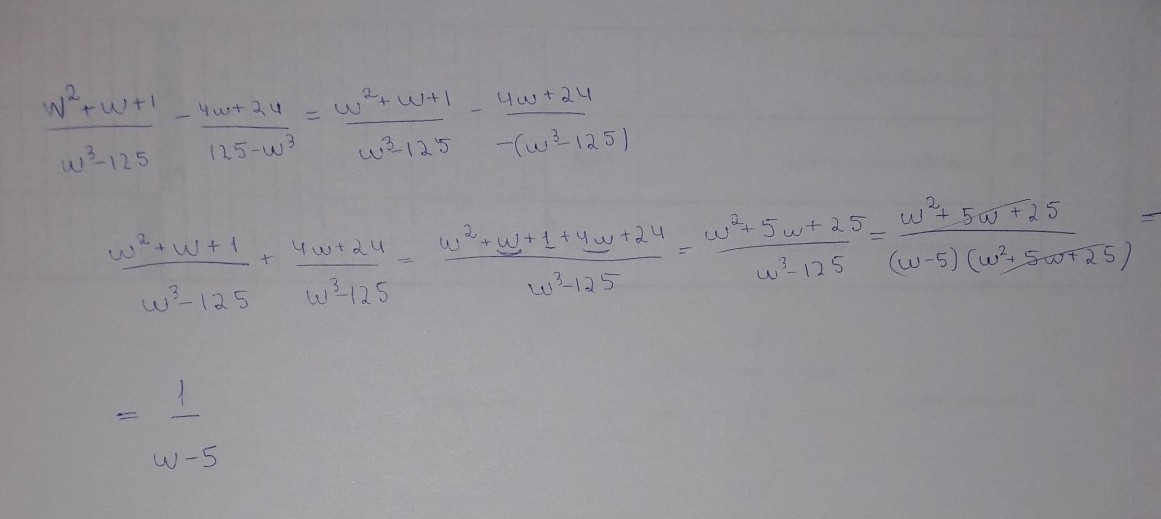 (w²+w+1)/(w³-125) - (4w+24)/(125-w³) = (w²+w+1)/(w³-125) - (4w+24)/(-(w³-125))
(w²+w+1)/(w³-125) + (4w+24)/(w³-125) = (w²+w+1+4w+24)/(w³-125) = (w²+5w+25)/(w³-125) = (w²+5w+25)/((w-5)(w²+5w+25)) =
= 1/(w-5)